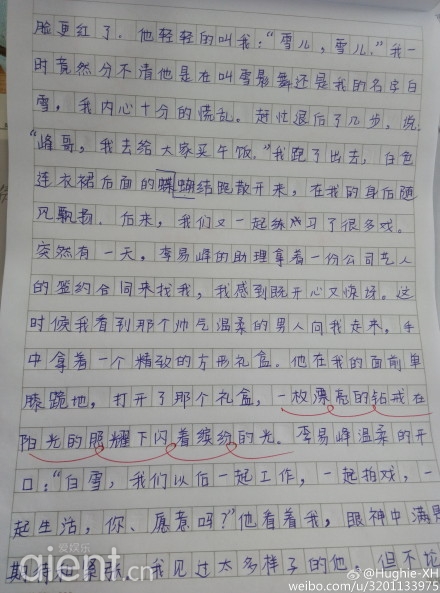 脸更红了。他轻轻的叫我:“雪儿,雪儿。”我一
时竟然分不清他是在叫雪影舞还是我的名字白
雪。我内心十分的慌乱。赶忙退后了几步,说
“峰哥,我去给大家买午饭。”我跑了出去,白色
连衣裙后面的蝴蝶结跑散开来,在我的身后随
风飘扬。后来,我们又一起练习了很多戏。
突然有一天,李易峰的助理拿着一份公司艺人
的签约合同来找我,我感到既开心又惊讶。这
时候我看到那个帅气温柔的男人向我走来,手
中拿着一个精致的方形礼盒。他在我的面前单
膝跪地,打开了那个礼盒,一枚漂亮的钻戒在
阳光的照耀下闪着缤纷的光。李易峰温柔的开
口:“白雪,我们以后一起工作,一起拍戏,一
起生活,你、愿意吗?”他看着我,眼神中满是
期待和紧张。我见过太多样子的他,但不论
爱娱乐
aient.cn
@Hughie-XH
weibo.com/u/3201133975